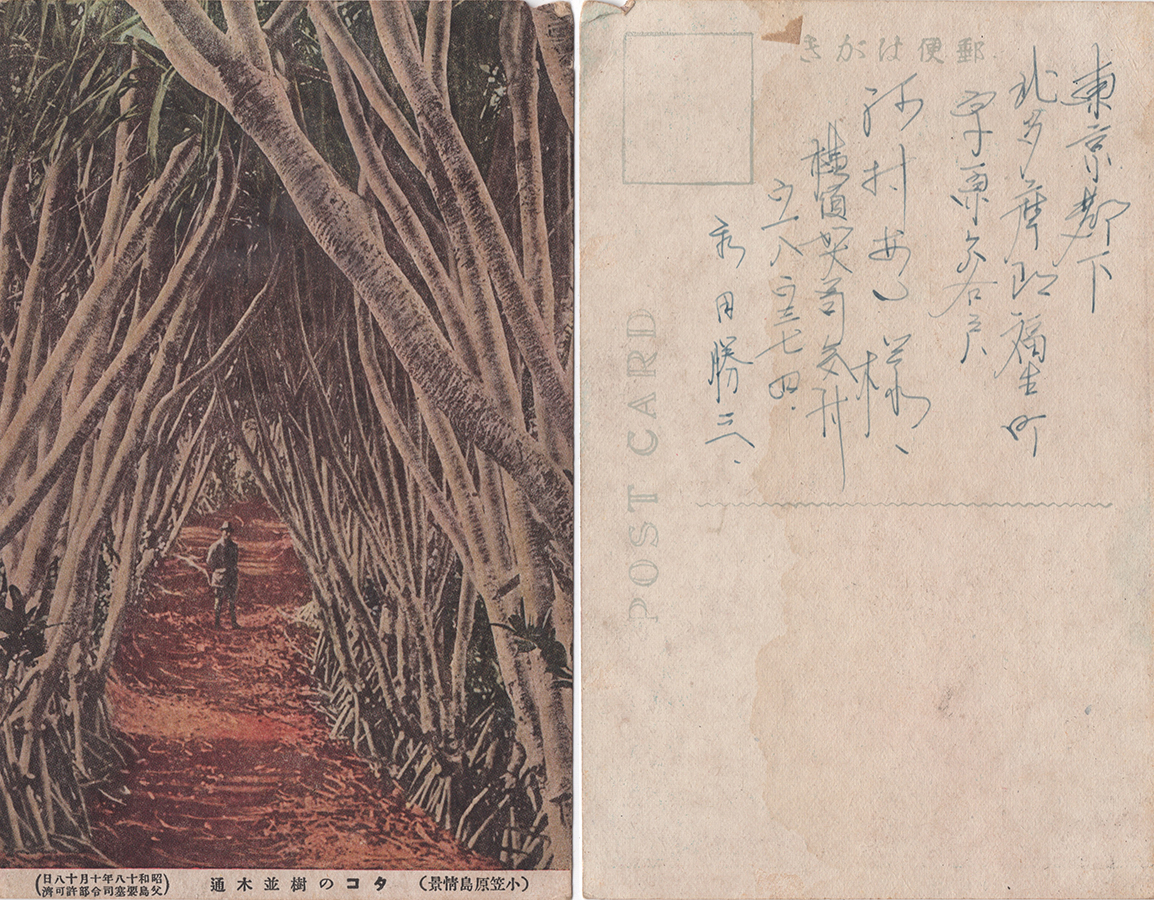 (小笠原島情景) タコの樹並木通
昭和十八年十月十八日
父島要塞司令部許可濟
郵便はがき
東京都下
北多摩郡福生町
字
村 様
横須賀局気付
ウ一八 ウ三七四
田勝三
POST CARD